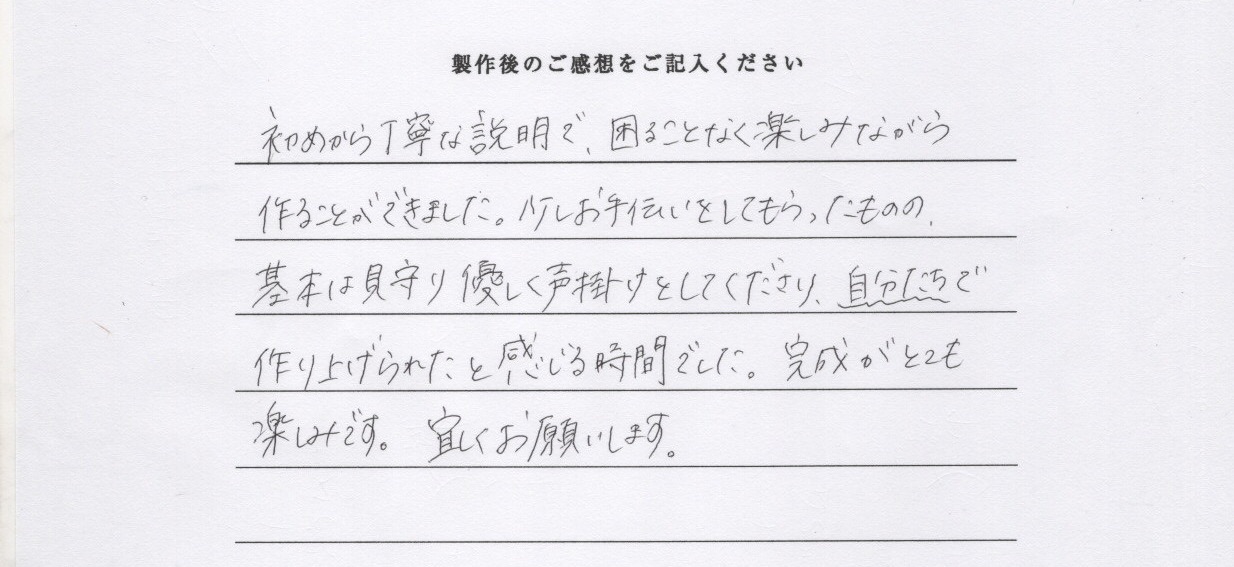 製作後のご感想をご記入ください
初めから丁寧な説明で、困ることなく楽しみながら
作ることができました。少しお手伝いをしてもらったものの、
基本は見守り優しく声掛けをしてくださり、自分たちで
作り上げられたと感じる時間でした。完成がとても
楽しみです。宜しくお願いします。